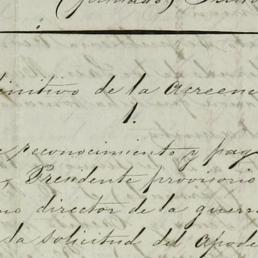 (firmado)
initivo de la acreenc
1.
e reconocimiento y pag
Presidente provisorio
mo director de la guerra
la solicitud del apode